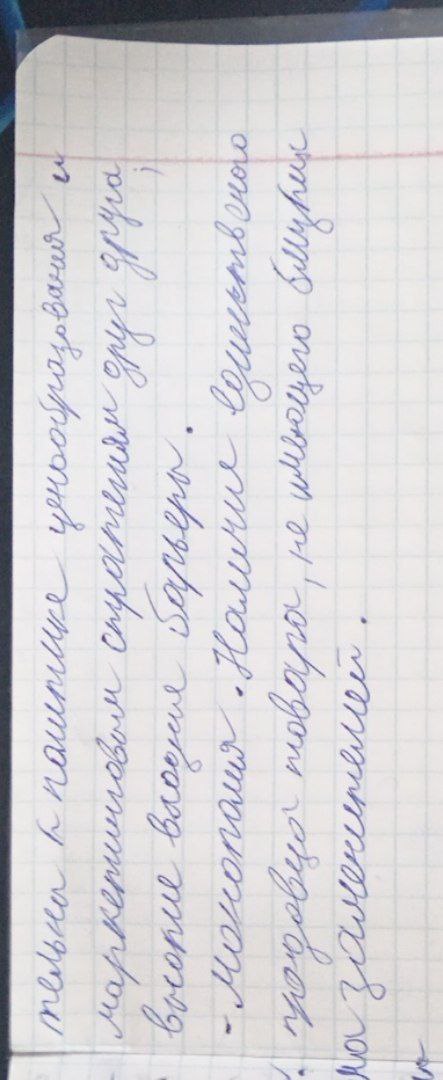 тельны к политике ценообразования и
маркетинговым стратегиям друг друга;
высокие входные барьеры.
- Монополия. Наличие единственного
продавца товара, не имеющего близких
заменителей.